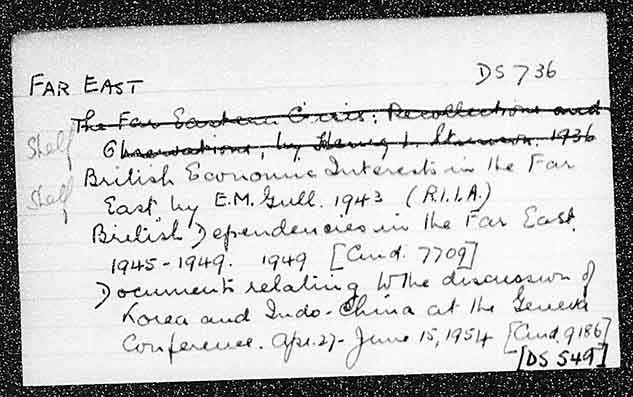 FAR EAST
DS 736
The Far Eastern Crisis: Recollections and
Shelf
Observations, by Henry L. Stimson. 1936
British Economic Interests in the Far
Shelf
East by E.M. Gull. 1943 (R.I.I.A.)
British Dependencies in the Far East.
1945-1949. 1949 [Cmd. 7709]
Documents relating to the discussion of
Korea and Indo-China at the Geneva
Conference. Apr. 27- June 15, 1954 [Cmd. 9186]
[DS 549]